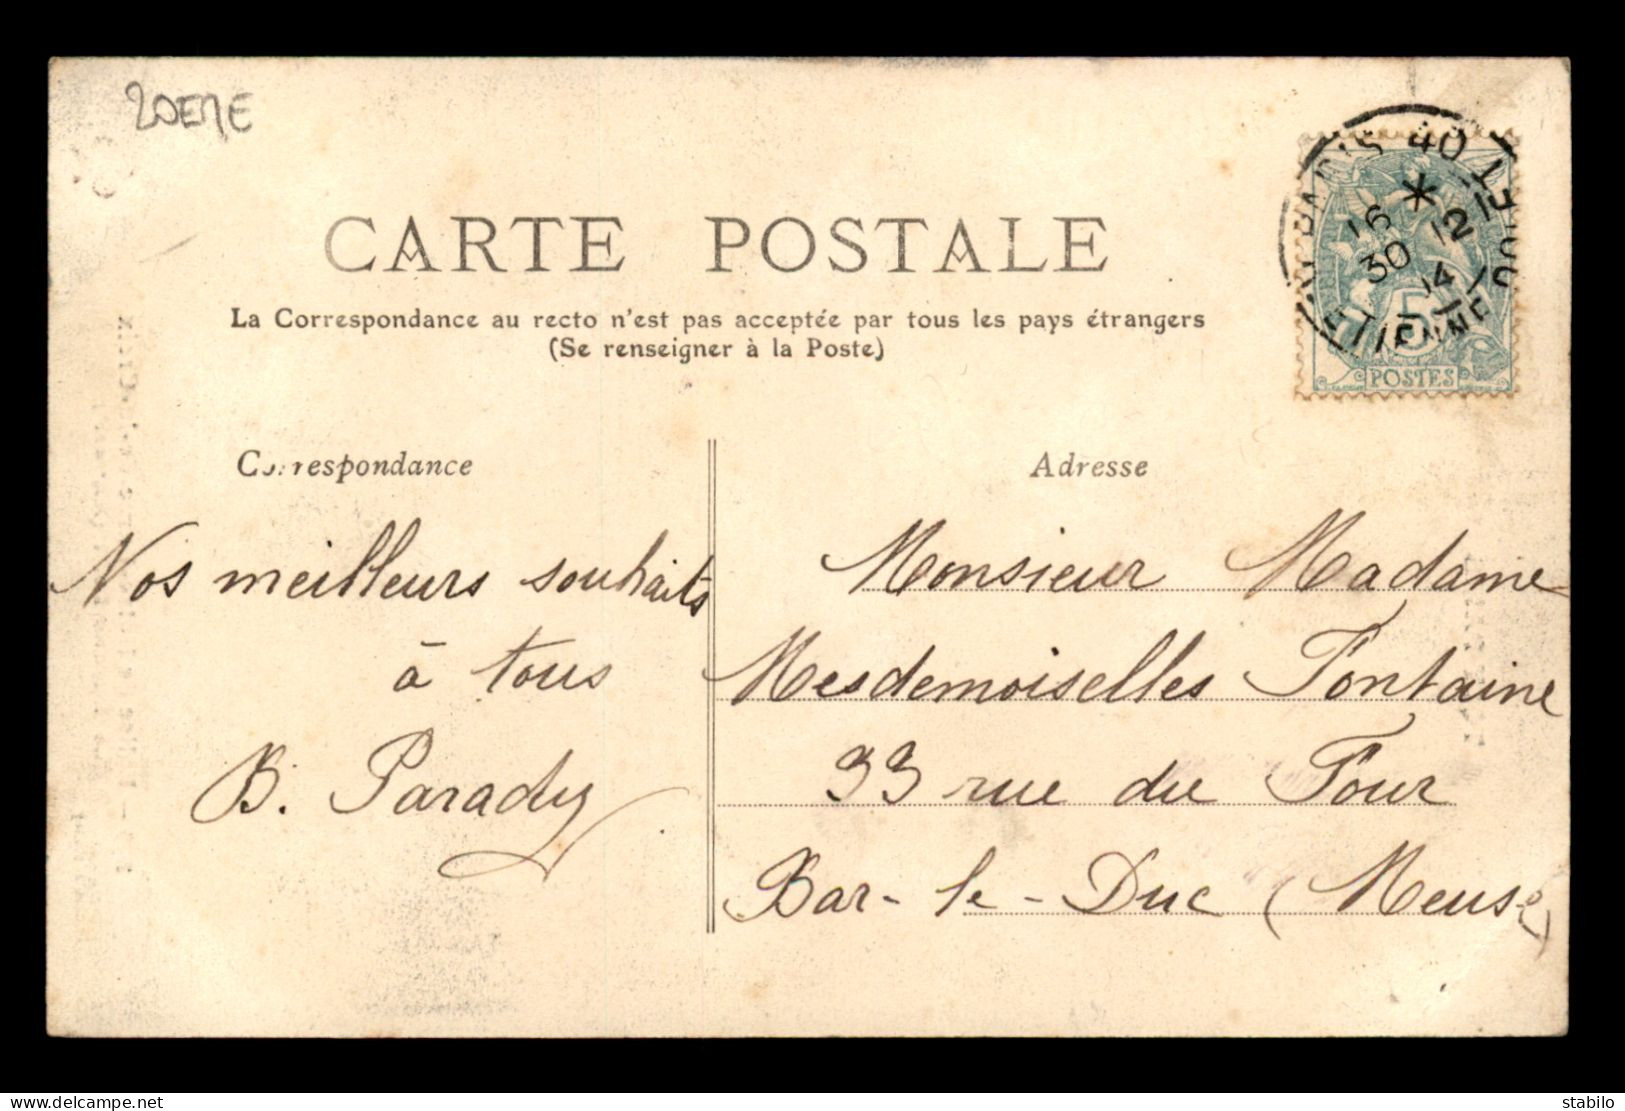 20EME
CARTE POSTALE
La Correspondance au recto n'est pas acceptée par tous les pays étrangers
(Se renseigner à la Poste)
PARIS 40
*
16 30
30 12
14
ETIENNE
5
POSTES
Correspondance
Nos meilleurs souhaits
à tous
B. Parady
Adresse
Monsieur Madame
Mesdemoiselles Fontaine
33 rue du Four
Bar-le-Duc (Meuse)
delcampe.net
stabilo